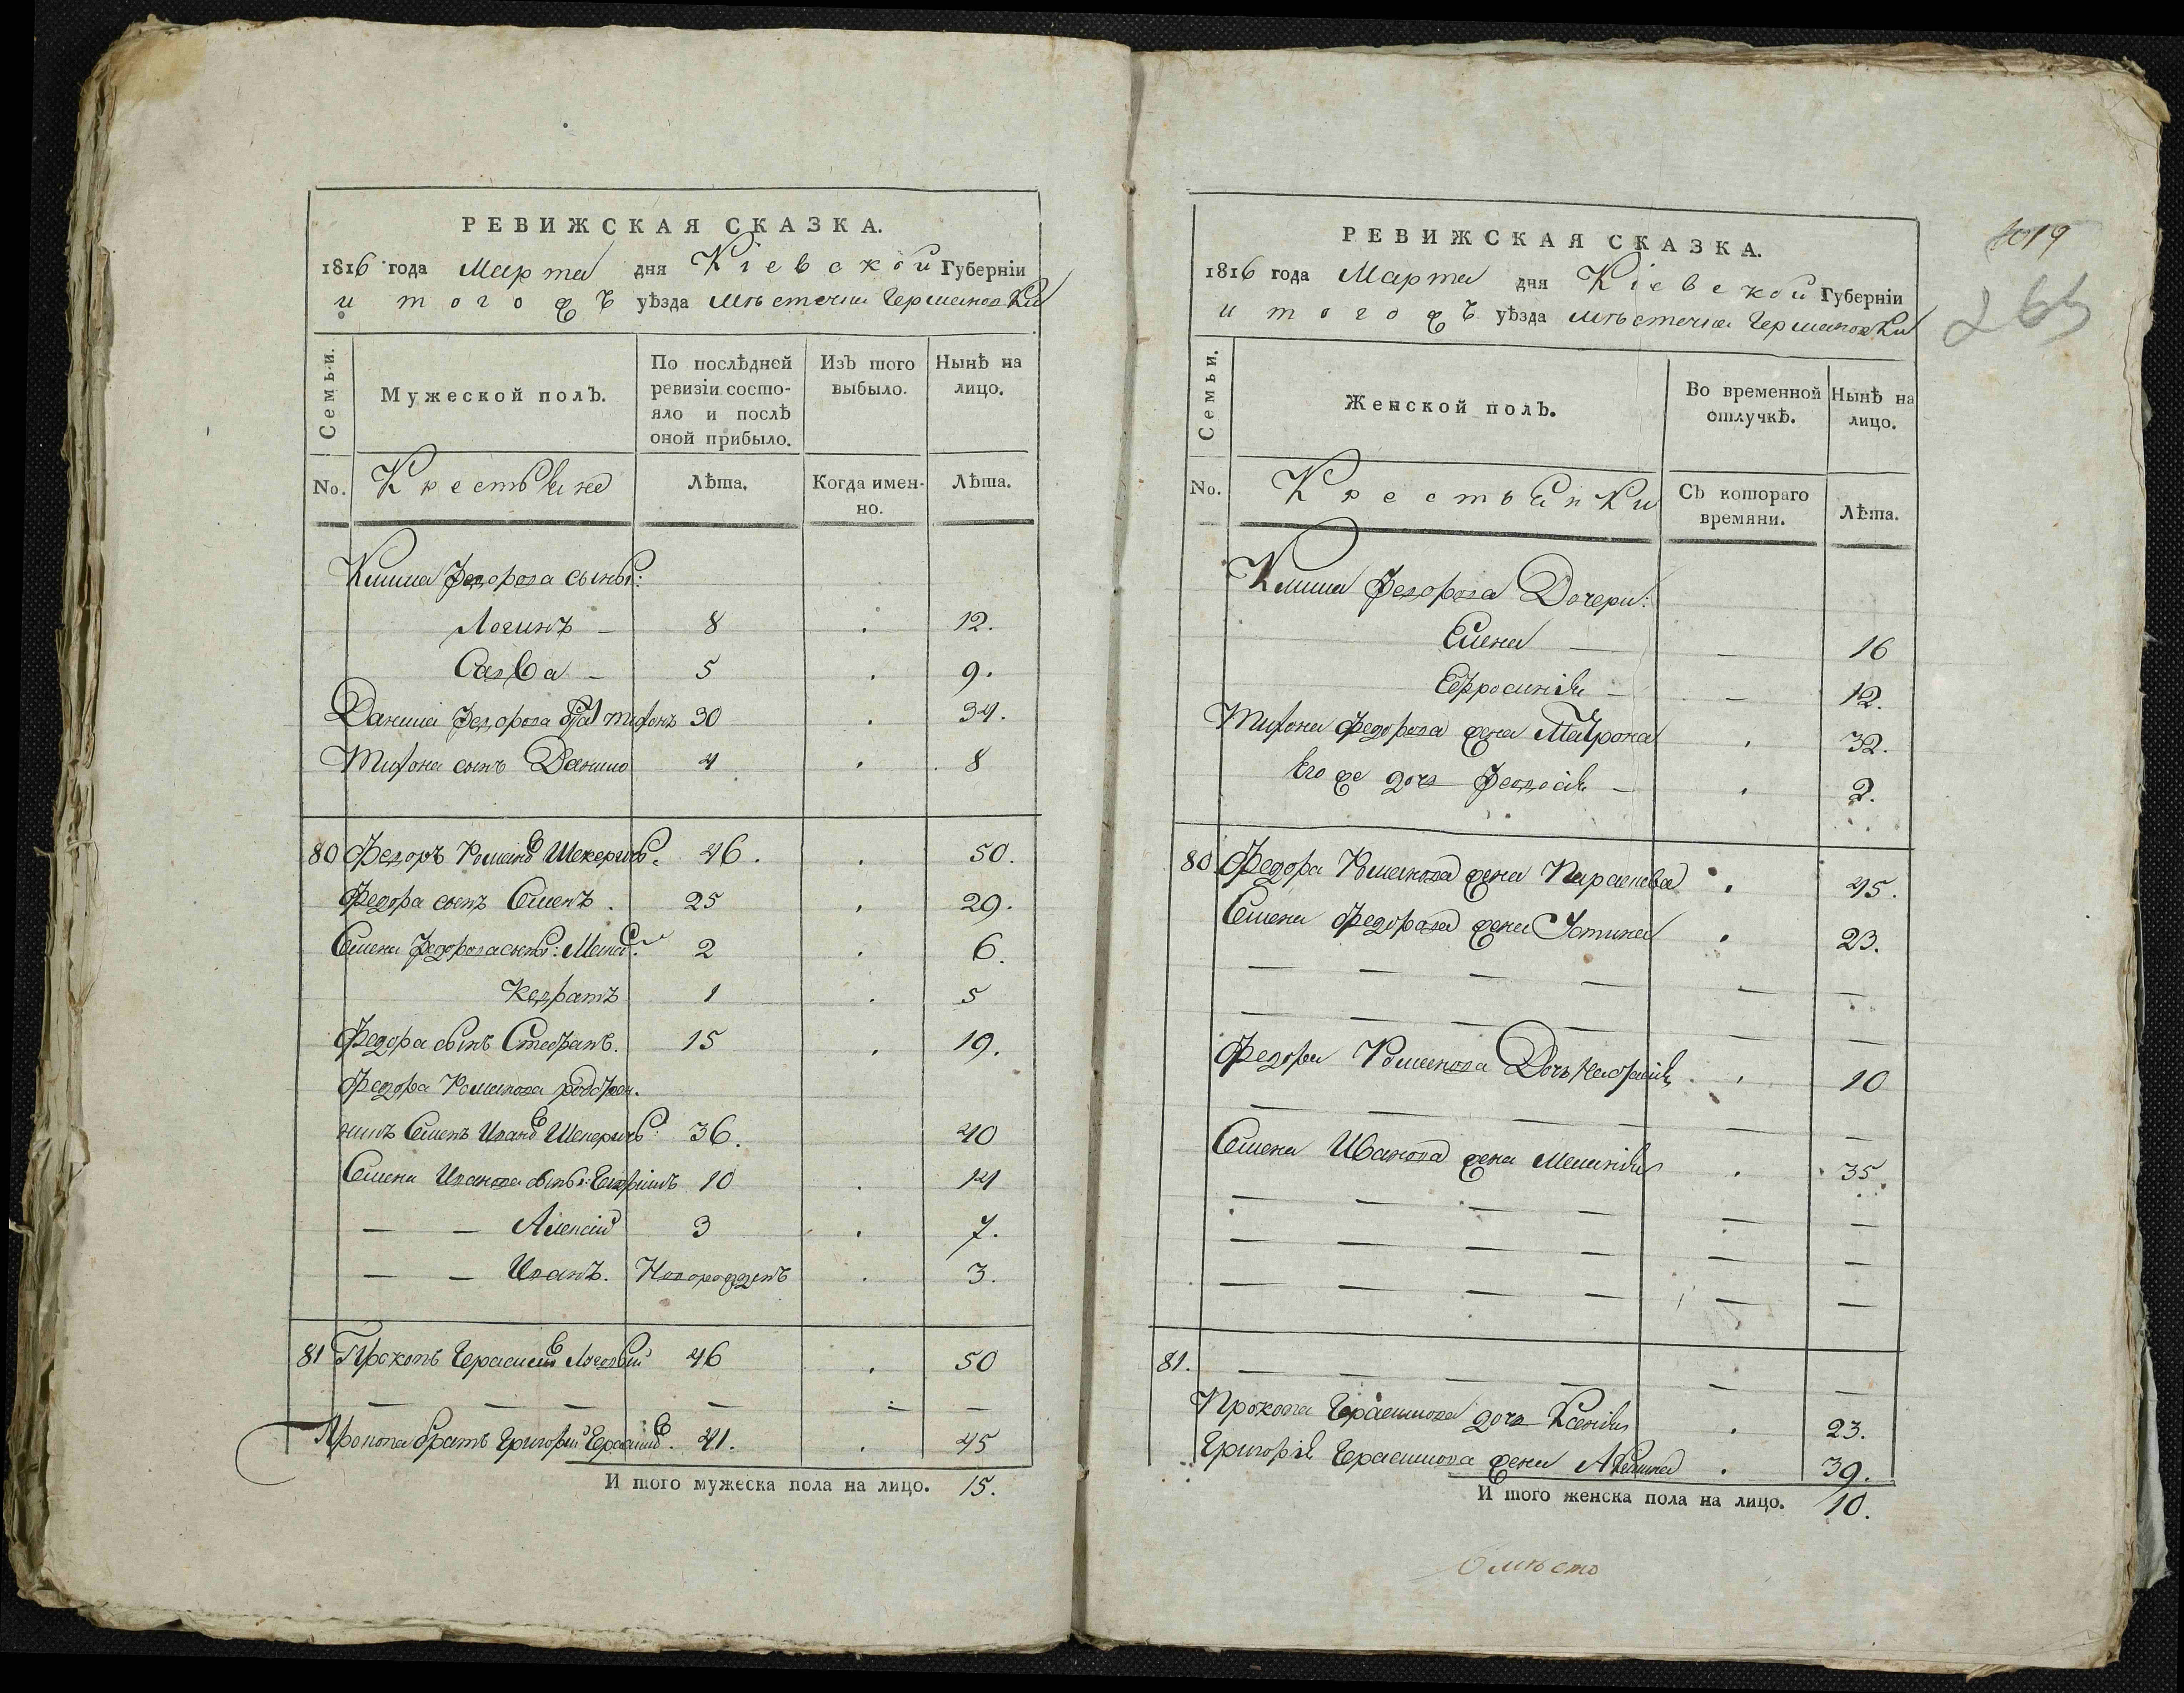 РЕВИЖСКАЯ СКАЗКА.
1816 года Марта дня Кіевской Губерніи
и тогожъ уѣзда мѣстечка Германовки
Семьи.
Мужеской полъ.
По послѣдней ревизіи состояло и послѣ оной прибыло.
Изъ того выбыло.
Нынѣ на лицо.
No.
Крестьяне
Лѣта.
Когда именно.
Лѣта.
Клима Федорова сыны:
Логинъ – 8 . 12.
Савва – 5 . 9.
Данила Федорова братъ 30 . 34.
сынъ Данило 4 . 8
80 Федоръ Романовъ 46. . 50.
Федора сынъ Семенъ . 25 . 29.
Семена Федорова сыны: 2 . 6.
Кодратъ 1 . 5
Федора сынъ Стефанъ. 15 . 19.
Федора Романова
Семенъ Ивановъ 36. 40
Семена Иванова сыны: Ефримъ 10 . 14
— — Алексій 3 . 7.
— — Иванъ. Новорожденъ . 3.
81 Прокопъ Герасимовъ 46 . 50
— — — — — —
Прокопа братъ Григорій Герасимовъ. 41. . 45
И того мужеска пола на лицо. 15.
1019
265
РЕВИЖСКАЯ СКАЗКА.
1816 года Марта дня Кіевской Губерніи
и тогожъ уѣзда мѣстечка Германовки
Семьи.
Женской полъ.
Во временной отлучкѣ.
Нынѣ на лицо.
No.
Крестьянки
Съ котораго времяни.
Лѣта.
Клима Федорова Дочери:
Елена — — 16
Ефросинія – – 12.
Федорова жена Матрона . 32.
Его же дочь Феодосія – . 2.
80 Федора Романова жена Параскева . 45.
Семена Федорова жена Юстина . 23.
— — — — — —
— — — — — —
Федора Романова Дочь . 10
— — — — — —
Семена Иванова жена Меланія . 35.
— — — — — —
— — — — — —
— — — — — —
81. — — — — — —
Прокопа Герасимова дочь Ксенія . 23.
Григорія Герасимова жена . 39.
И того женска пола на лицо. 10.